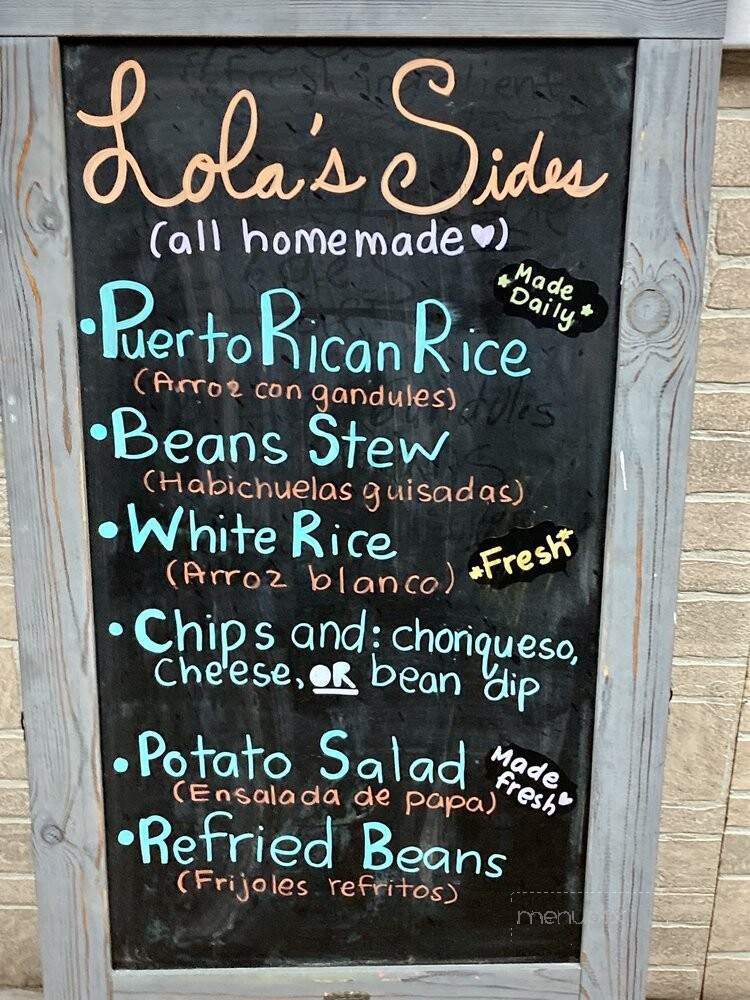 Lola's Sides
(all homemade♥)
Made
Daily
•Puerto Rican Rice
(Arroz con gandules)
•Beans Stew
(Habichuelas guisadas)
•White Rice
Fresh
(Arroz blanco)
•Chips and: choriqueso,
cheese, OR bean dip
•Potato Salad
Made
fresh♥
(Ensalada de papa)
•Refried Beans
(Frijoles refritos)